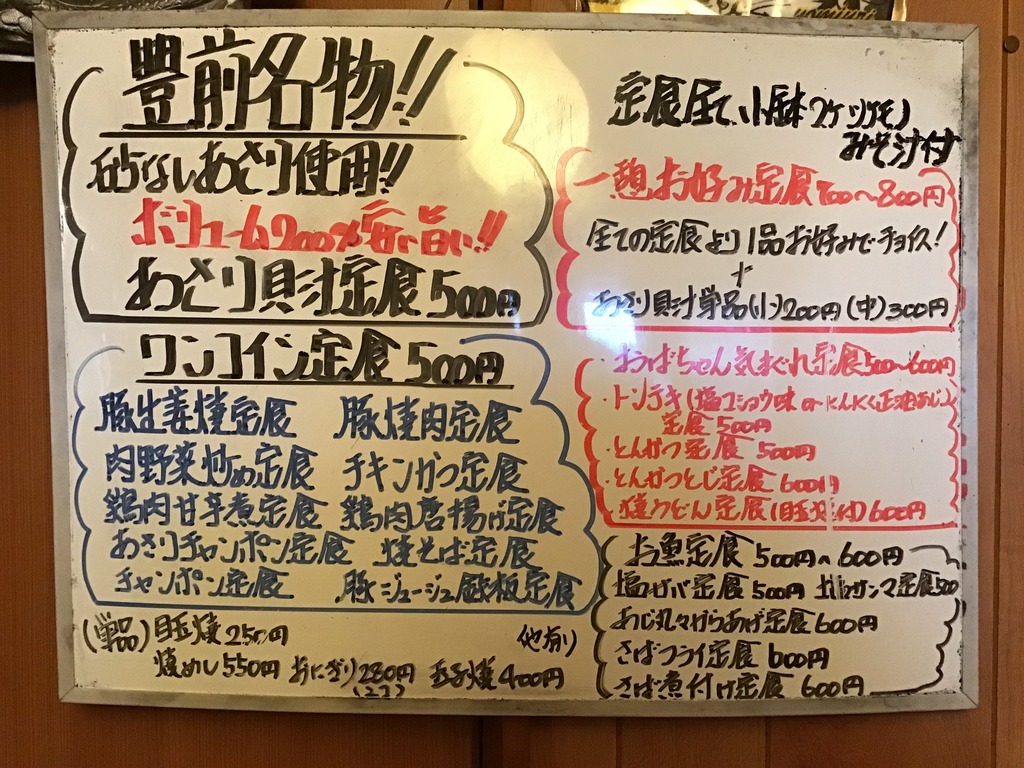 豊前名物!!
砂なしあさり使用!!
ボリューム200%安い旨い!!
あさり貝汁定食500円
ワンコイン定食500円
豚生姜焼定食 豚焼肉定食
肉野菜炒め定食 チキンかつ定食
鶏肉甘辛煮定食 鶏肉唐揚げ定食
あさりチャンポン定食 焼そば定食
チャンポン定食 豚ジュージュー鉄板定食
(単品)目玉焼250円 他有り
焼めし550円 おにぎり280円 玉子焼400円
(2コ)
定食全て、小鉢2ケ ツケモノ
みそ汁付
一憩お好み定食700〜800円
全ての定食より1品お好みでチョイス!
+
あさり貝汁単品(小)200円(中)300円
・おばちゃん気まぐれ定食500〜600円
・トンテキ(塩コショウ味 or にんにく正油あじ)
定食500円
・とんかつ定食500円
・とんかつとじ定食600円
・焼うどん定食(目玉焼付)600円
お魚定食500円〜600円
塩サバ定食500円 サンマ定食500
あじ丸々からあげ定食600円
さばフライ定食600円
さば煮付け定食600円